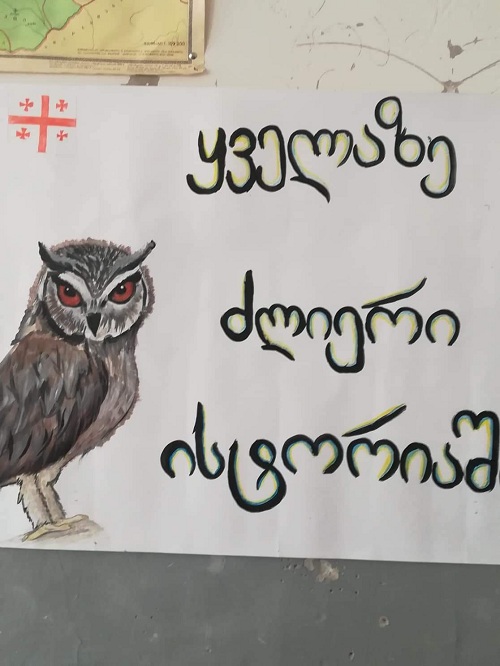 ყველაზე
ძლიერი
ისტორიაში